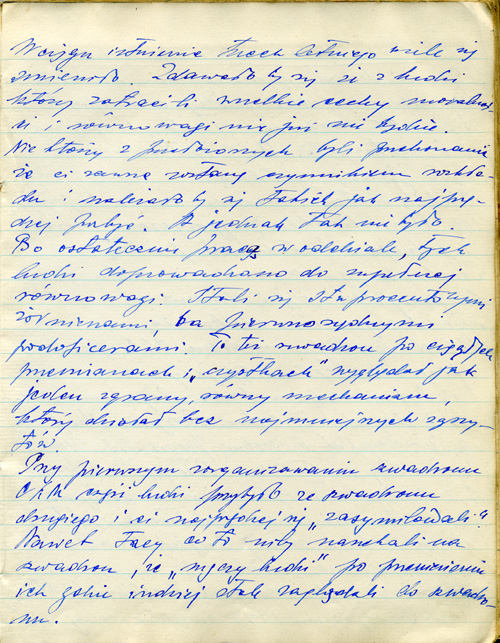 W ciągu istnienia trzech letniego wiele się
zmieniło. Zdawało by się że z ludzi
którzy zatracili wszelkie cechy moralnoś-
ci i równowagi nic już nie będzie.
Niektórzy z przełożonych byli przekonani
że ci zawsze zostaną czynnikiem rozkła-
du i należało by się takich jak najprę-
dzej pozbyć. A jednak tak nie było.
Bo ostatecznie pracą w oddziale, tych
ludzi doprowadzono do zupełnej
równowagi. Stali się stuprocentowymi
żołnierzami, ba pierwszorzędnymi
podoficerami. To też szwadron po ciągłych
przemianach i „czystkach” wyglądał jak
jeden zgrany, równy mechanizm,
który działał bez najmniejszych zgrzy-
tów.
Przy pierwszym zorganizowaniu szwadronu
CKM część ludzi przybyło ze szwadronu
drugiego i ci najprędzej się „zasymilowali.”
Nawet tacy co to niby narzekali na
szwadron, że „męczy ludzi” po przeniesieniu
ich gdzie indziej stale zaglądali do szwadro-
nu.